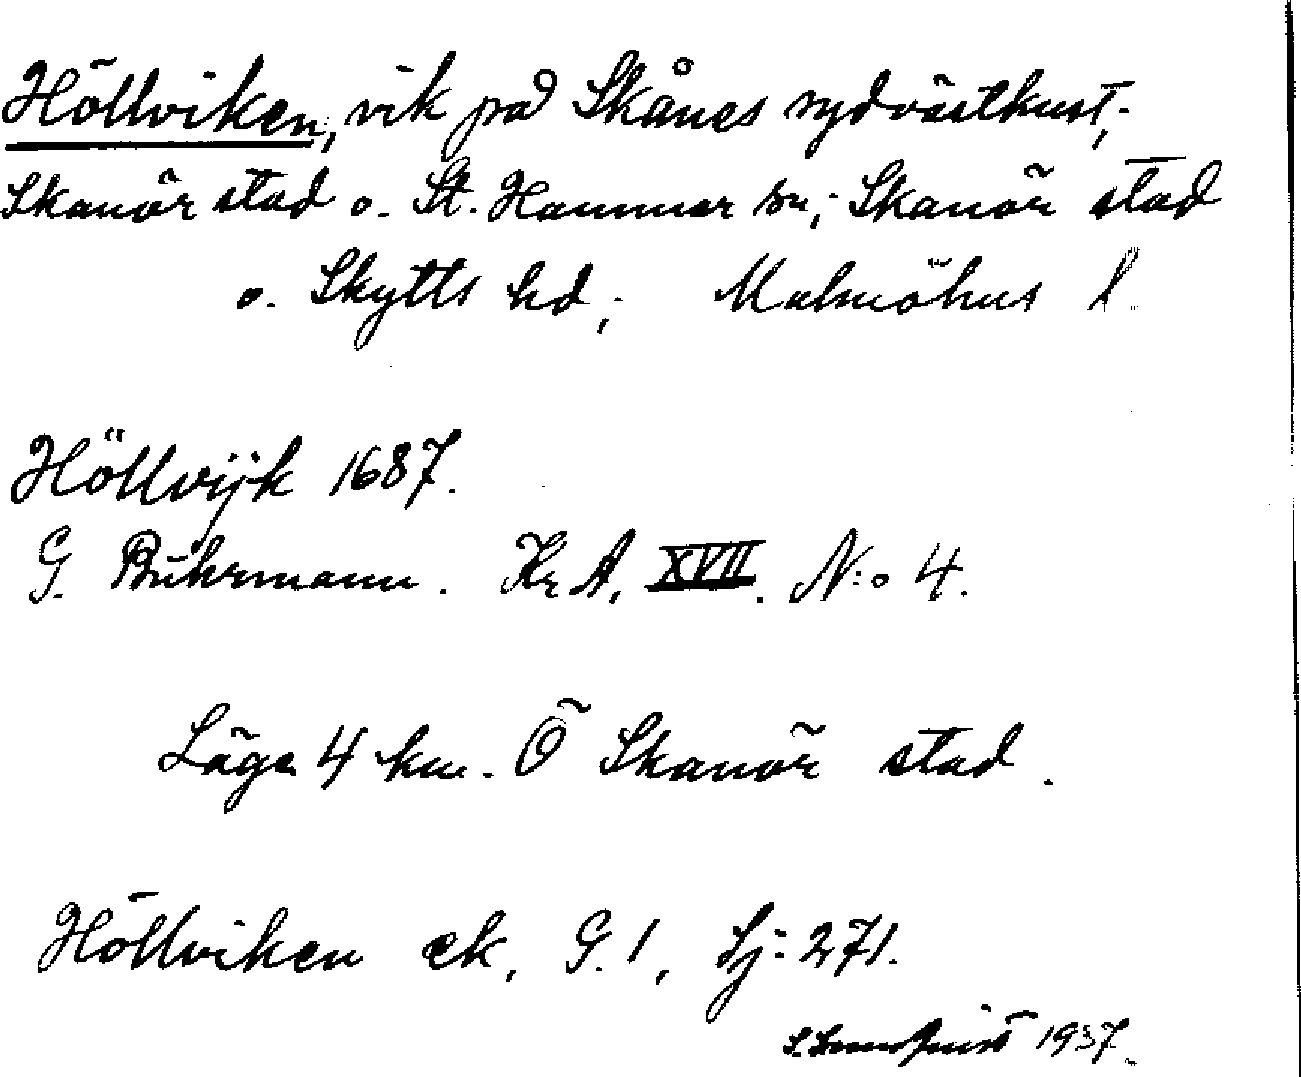 Höllviken, vik på Skånes sydvästkust,-
Skanör stad o. St. Hammar sn;- Skanör stad
o. Skytts hd; Malmöhus l.
Höllvijk 1687.
G. Buhrmann. Kr A. XVII. N:o 4.
Läge 4 km. Ö Skanör stad.
Höllviken ek, G. 1, Sj: 271.
1937.